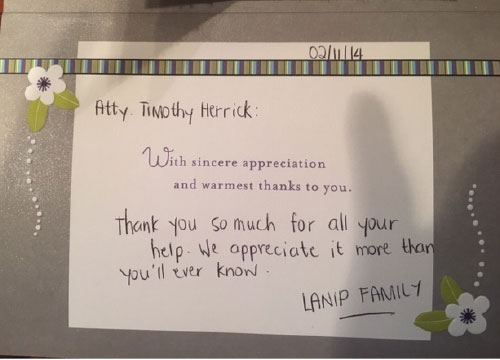 02/11/14
Atty. TIMothy Herrick:
With sincere appreciation
and warmest thanks to you.
Thank you so much for all your
help. We appreciate it more than
you'll ever know.
LANIP FAMILY